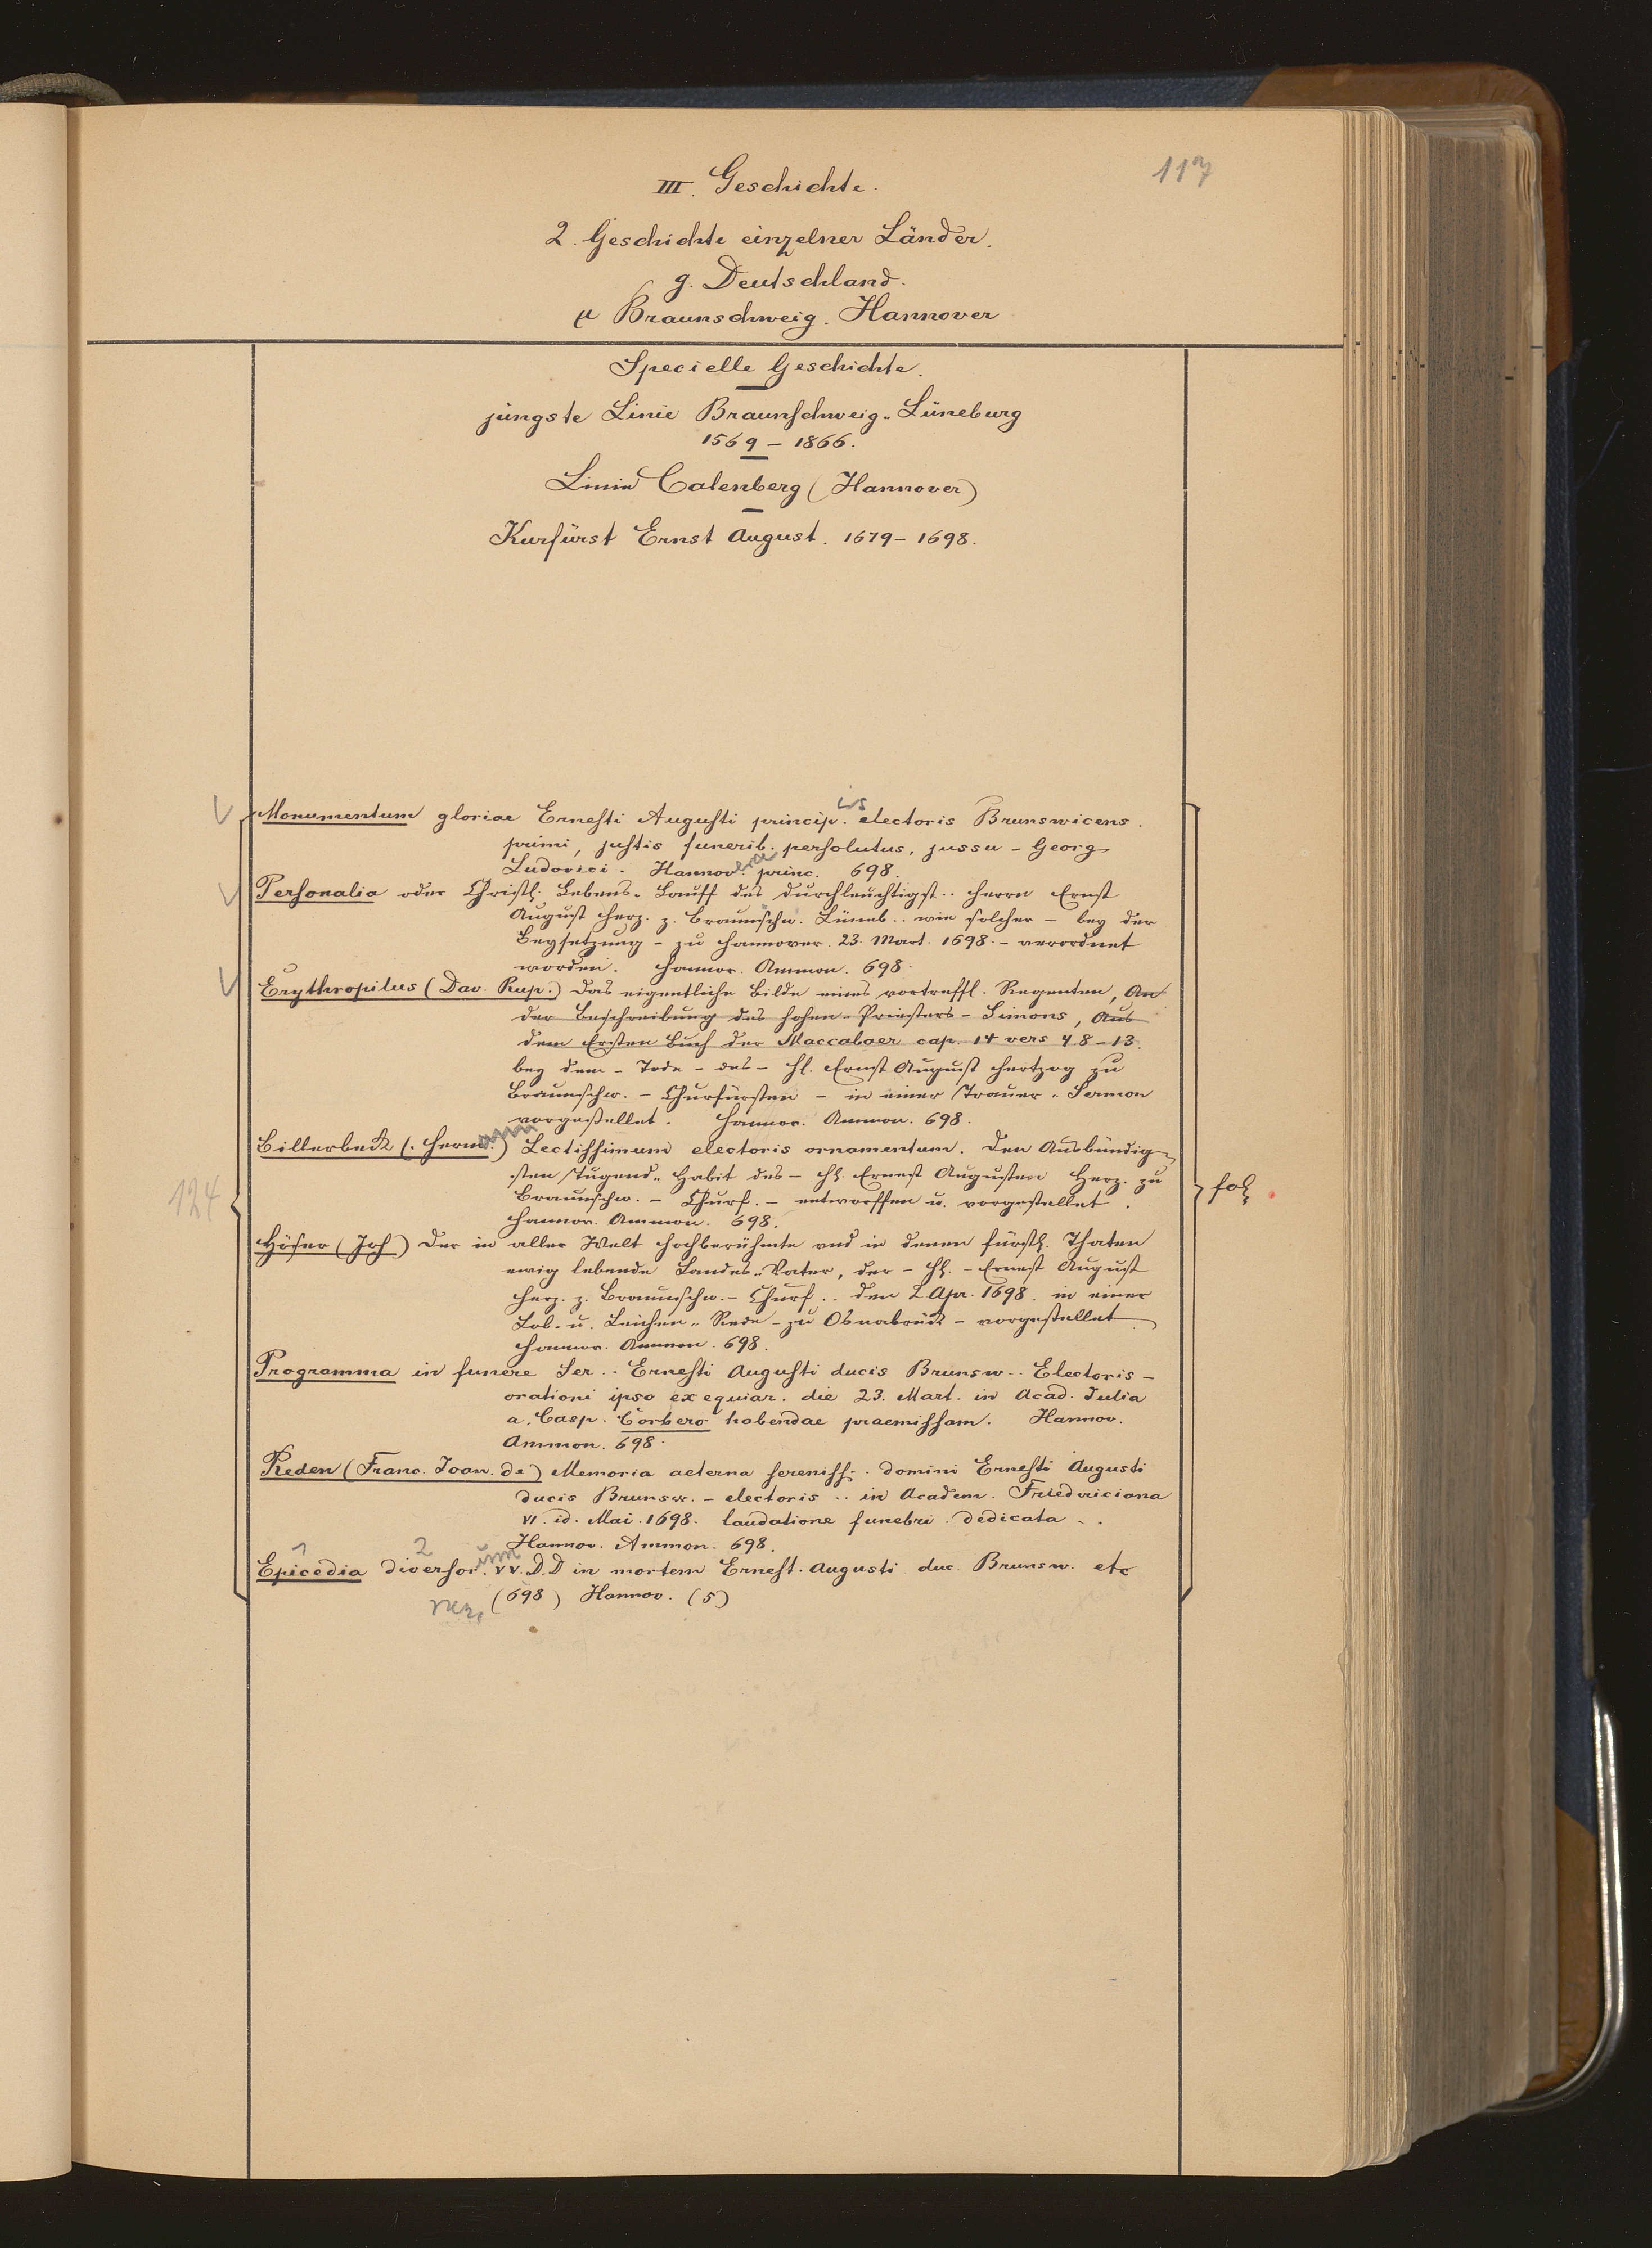 117
III. Geschichte.
2. Geschichte einzelner Länder.
g. Deutschland.
μ Braunschweig. Hannover
Specielle Geschichte.
jüngste Linie Braunschweig-Lüneburg
1569 – 1866.
Linie Calenberg (Hannover)
Kurfürst Ernst August. 1679 – 1698.
Monumentum gloriae Ernesti Augusti princip.is electoris Brunswicens.
primi, justis funerib. persolutus, jussu – Georg
Ludovici. Hannoverae princ. 698.
Personalia oder Christl. Lebens-Lauff des durchleuchtigst.. Herrn Ernst
August Herz. z. Braunschw. Lüneb.. wie solcher – bey der
Beysetzung – zu Hannover. 23. Mart. 1698. – verordnet
worden. Hannov. Ammon. 698.
Erythropilus (Dav. Rup.) Das eigentliche Bilde eines vortreffl. Regenten, An
der Beschreibung des Hohen-Priesters – Simons, Aus
dem Ersten Buch der Maccabaer cap. 14 vers 4.8–13.
bey dem – Tode – des – H. Ernst August Hertzog zu
Braunschw. – Churfürsten – in einer Trauer-Sermon
vorgestellet. Hannov. Ammon. 698.
Billerbeck (. Hermann.) Lectissimum electoris ornamentum. Den Ausbündig-
sten Tugend-Habit des – H. Ernest Augusten Herz. zu
Braunschw. – Churf. – entworffen u. vorgestellet.
Hannov. Ammon. 698.
124
fol.
Höfer (Joh) Der in aller Welt hochberühmte und in denen fürstl. Thaten
ewig lebende Landes-Vater, der – H. – Ernest August
Herz. z. Braunschw. – Churf.. den 2 Apr. 1698. in einer
Lob- u. Leichen-Rede – zu Osnabrück – vorgestellet
Hannov. Ammon. 698.
Programma in funere Ser.. Ernesti Augusti ducis Brunsw.. Electoris –
orationi ipso exequiar. die 23. Mart. in Acad. Julia
a. Casp. Corbero habendae praemissam. Hannov.
Ammon. 698.
Reden (Franc. Joan. de) Memoria aeterna sereniss.. domini Ernesti Augusti
ducis Brunsw. – electoris .. in Academ. Friedriciana
VI. id. Mai. 1698. laudatione funebri dedicata ..
Hannov. Ammon. 698.
1 2
Epicedia diversor.um VV. D.D in mortem Ernest. Augusti duc. Brunsw. etc
(698) Hannov. (5)